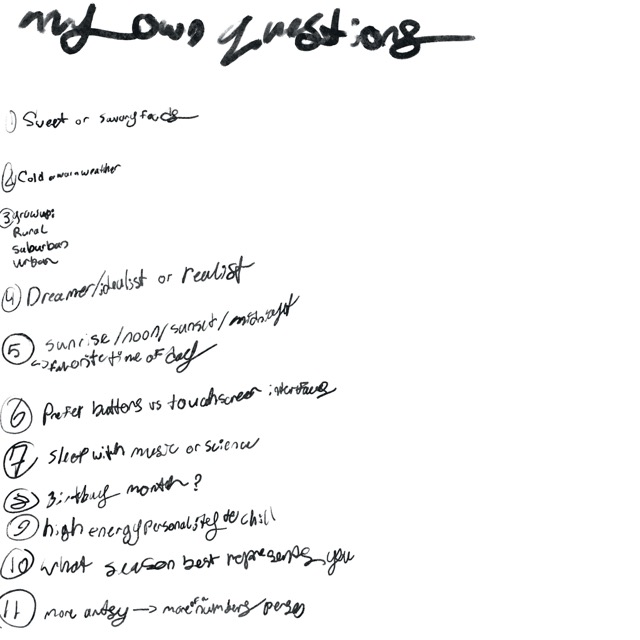 my own questions
1) Sweet or savory foods
2) Cold or warm weather
3 grow up:
Rural
suburban
urban
4) Dreamer/idealist or realist
5 sunrise/noon/sunset/midnight
↳ favorite time of day
6 Prefer buttons vs touchscreen interfaces
7 sleep with music or science
8 Birthday month?
9 high energy personality or chill
10 what season best represents you
11 more artsy → more of a numbers person